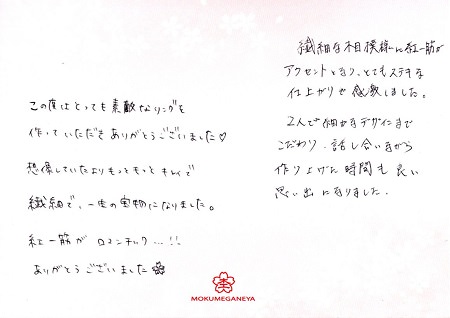 この度はとっても素敵なリングを
作っていただきありがとうございました♡
想像していたよりもっともっとキレイで
繊細で、一生の宝物になりました。
紅一筋がロマンチック…!!
ありがとうございました
繊細な相模様に紅一筋が
アクセントとなり、とてもステキな
仕上がりで感激しました。
2人で細かなデザインまで
こだわり、話し合いながら
作り上げた時間も良い
思い出になりました。
MOKUMEGANEYA